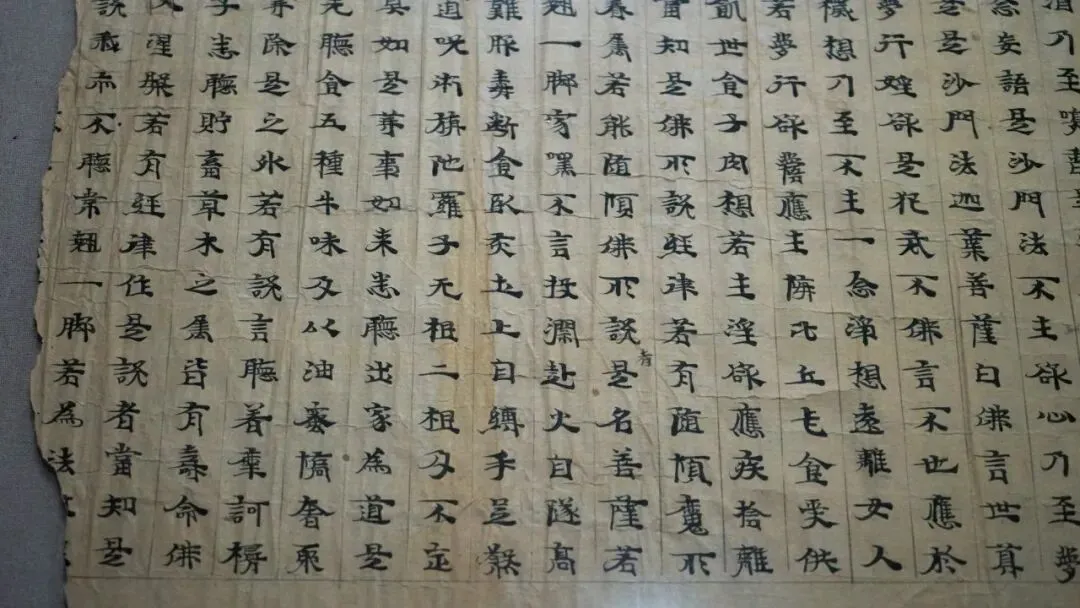 乃至
念妄語是沙門法不主欲心乃至夢
是是沙門法迦葉菩薩白佛言世尊
夢行婬欲是犯戒不佛言不也應於
穢想乃至不主一念淨想遠離女人
若夢行欲寤應主悔比丘乞食受供
飢世食子肉想若主淫欲應疾捨離
當知是佛所説経律若有随順魔所
属若能随順佛所説是者名菩薩若
翹一脚寂嘿不言投淵赴火自墜高
難服毒断食臥灰土上自縛手足殺
道呪術旃陀羅子无根二根及不定
具如是等事如来悉聽出家為道是
无聽食五種牛味及以油蜜憍奢耶
等除是之外若有説言聽著摩訶楞
子悉聽貯畜草木之属皆有壽命佛
涅槃若有経律作是説者當知是
説我亦不聽常翹一脚若為法